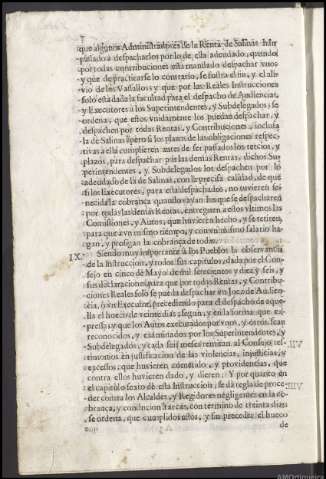 que algunos Administradores de la Renta de Salinas han
passado à despacharlos por lo de ella adeudado, quando
por todas contribuciones està mandado despachar unos
y que de practicarse lo contrario, se frustra el fin, y el ali-
vio de los Vassallos, y que por las Reales Instrucciones
solo està dada la facultad para el despacho de Audiencias,
y Executores à los Superintendentes, y Subdelegados; se
ordena, que estos unidamente los puedan despachar, y
despachen por todas Rentas, y Contribuciones, inclusa
la de Salinas; pero si los plazos de las obligaciones respec-
tivas à ella cumplieren antes de ser passados los tercios, y
plazos, para despachar por las demàs Rentas, dichos Su-
perintendentes, y Subdelegados los despachen por lo
adeudado de la de Salinas, con la precisa calidad, de que
si los Executores, para esta despachados, no tuvieren fe-
necida la cobranza quando vayan los que se despacharen
por todas las demàs Rentas, entreguen à estos ultimos las
Comissiones, y Autos, que huvieren hecho, y se retiren,
para que à un mismo tiempo, y con un mismo salario ha-
gan, y prosigan la cobranza de todas.
IX. Siendo muy importante à los Pueblos la observancia
de la Instruccion, y todos sus capitulos, dada por el Con-
sejo en cinco de Mayo de mil setecientos y diez y seis, y
sus declaraciones, para que por todas Rentas, y Contribu-
ciones Reales solo se pueda despachar un Juez de Audien-
cia, ò un Executor, precediendo para el despacho de aque-
lla el hueco de veinte dias; segun, y en la forma que ex-
pressa; y que los Autos executados por unos, y otros sean
reconocidos, y examinados por los Superintendentes, y
Subdelegados, y cada seis meses remitan al Consejo tes-
timonios en justificacion de las violencias, injusticias, y
excessos, que huvieren cometido, y providencias, que
contra ellos huvieren dado, y dieren: Y por quanto en
el capitulo sexto de esta Instruccion, se dà regla de proce-
der contra los Alcaldes, y Regidores negligentes en la co-
branza, y conducion à las arcas, con termino de treinta dias;
se ordena, que cumplidos estos, y sin preceder el hueco
de